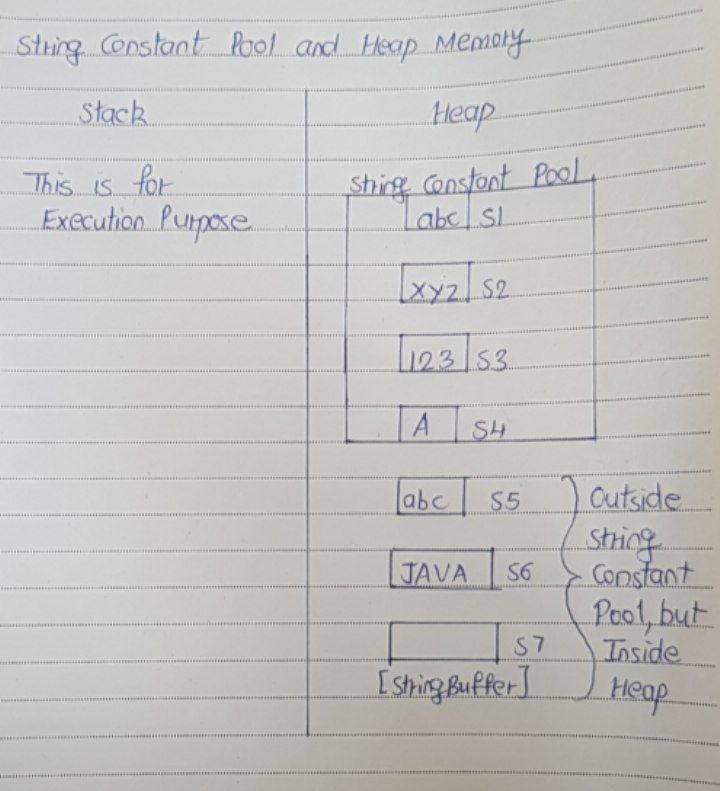 String Constant Pool and Heap Memory
Stack
Heap
This is for
Execution Purpose
String Constant Pool
abc S1
xyz S2
123 S3
A S4
abc S5
JAVA S6
S7
[StringBuffer]
Outside
String
Constant
Pool, but
Inside
Heap